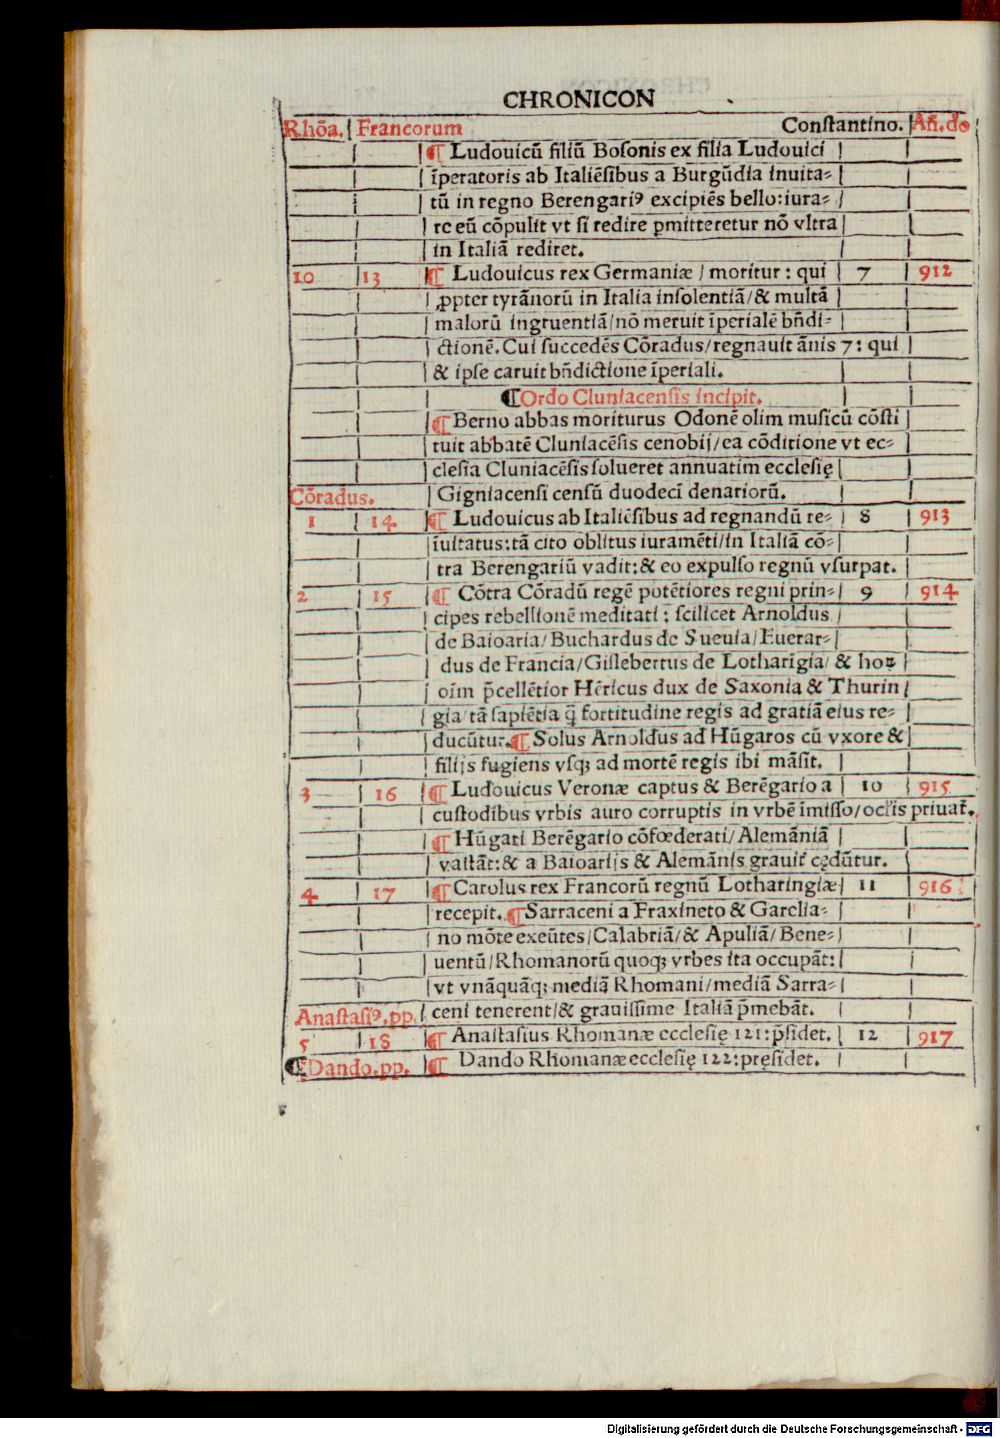 CHRONICON
Rhõa. Francorum Constantino. Añ.do
¶ Ludouicũ filiũ Bosonis ex filia Ludouici
ĩperatoris ab Italiẽsibus a Burgũdia inuita-
tũ in regno Berengariꝰ excipiẽs bello:iura-
re eũ cõpulit vt si redire ꝑmitteretur nõ vltra
in Italiã rediret.
10 13 ¶ Ludouicus rex Germaniæ / moritur : qui 7 912
ꝓpter tyrãnorũ in Italia insolentiã/& multã
malorũ ingruentiã/nõ meruit ĩperialẽ bñdi-
ctionẽ.Cui succedẽs Cõradus/regnauit ãnis 7: qui
& ipse caruit bñdictione ĩperiali.
¶Ordo Cluniacensis incipit.
¶Berno abbas moriturus Odonẽ olim musicũ cõsti
tuit abbatẽ Cluniacẽsis cenobij/ea cõditione vt ec-
clesia Cluniacẽsis solueret annuatim ecclesię
Cõradus. Gigniacensi censũ duodecĩ denariorũ.
1 14 ¶ Ludouicus ab Italiẽsibus ad regnandũ re- 8 913
ĩuitatus:tã cito oblitus iuramẽti/in Italiã cõ-
tra Berengariũ vadit:& eo expulso regnũ vsurpat.
2 15 ¶ Cõtra Cõradũ regẽ potẽtiores regni prin- 9 914
cipes rebellionẽ meditati : scilicet Arnoldus
de Baioaria/Buchardus de Sueuia/Euerar-
dus de Francia/Gislebertus de Lotharĩgia/ & hoꝝ
oĩm p̃cellẽtior Hẽricus dux de Saxonia & Thurin
gia/tã sapiẽtia q̃ fortitudine regis ad gratiã eius re-
ducũtur.¶Solus Arnoldus ad Hũgaros cũ vxore &
filijs fugiens vsqꝫ ad mortẽ regis ibi mãsit.
3 16 ¶Ludouicus Veronæ captus & Berẽgario a 10 915
custodibus vrbis auro corruptis in vrbẽ ĩmisso/oclis priuat̃.
¶Hũgari Berẽgario cõfœderati/Alemãniã
vastãt:& a Baioarijs & Alemãnis grauit̃ cędũtur.
4 17 ¶Carolus rex Francorũ regnũ Lotharingiæ 11 916
recepit.¶Sarraceni a Fraxineto & Garelia-
no mõte exeũtes/Calabriã/& Apuliã/Bene-
uentũ/Rhomanorũ quoqꝫ vrbes ita occupãt:
vt vnãquãqꝫ mediã Rhomani/mediã Sarra-
Anastasiꝰ.pp. ceni tenerent/& grauissime Italiã p̃mebãt.
5 18 ¶ Anastasius Rhomanæ ecclesię 121:p̃sidet. 12 917
¶Dando.pp. ¶ Dando Rhomanæ ecclesię 122:pręsidet.
Digitalisierung gefördert durch die Deutsche Forschungsgemeinschaft - DFG